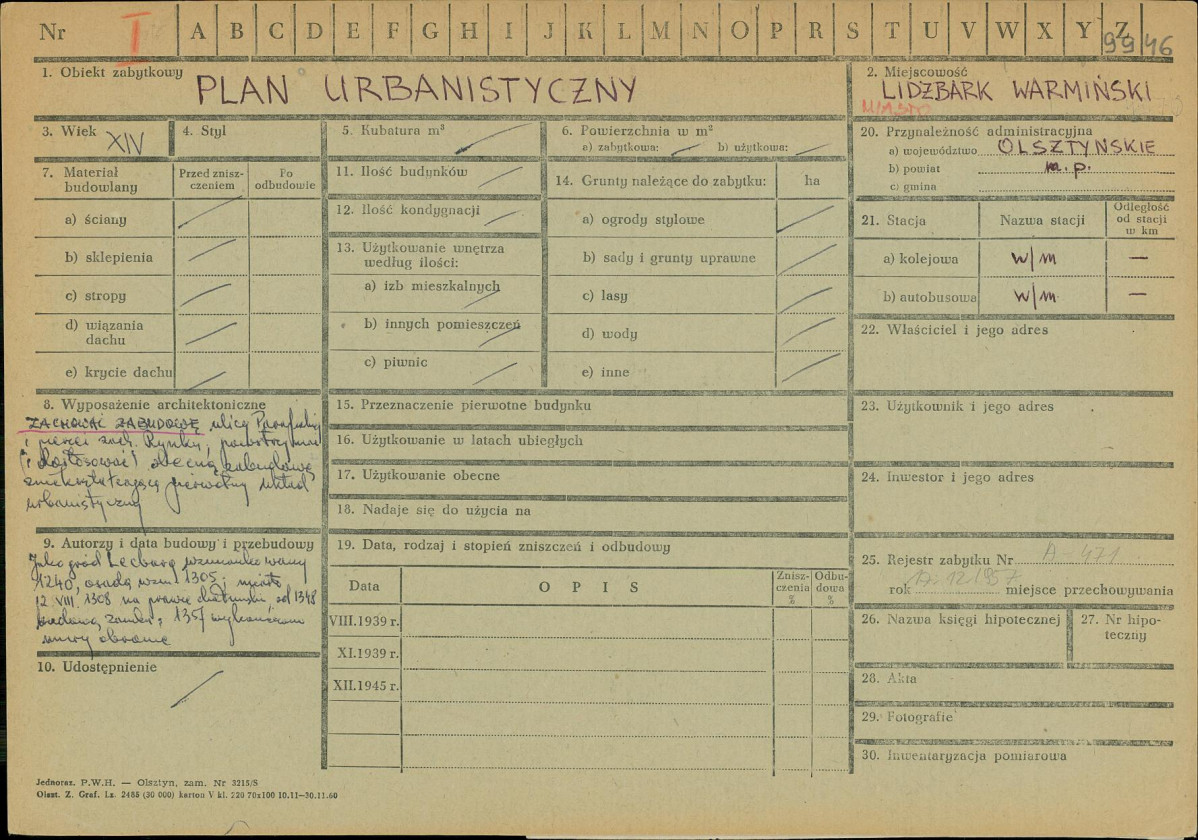 Nr I A B C D E F G H I J K L M N O P R S T U V W X Y Z
9946
1. Obiekt zabytkowy PLAN URBANISTYCZNY
2. Miejscowość
LIDZBARK WARMIŃSKI
MIASTO
3. Wiek XIV
4. Styl
5. Kubatura m³
6. Powierzchnia w m²
a). zabytkowa: b) użytkowa:
20. Przynależność administracyjna
a) województwo OLSZTYŃSKIE
b) powiat m.p.
c) gmina
7. Materiał budowlany
Przed zniszczeniem
Po odbudowie
a) ściany
b) sklepienia
c) stropy
d) wiązania dachu
e) krycie dachu
11. Ilość budynków
12. Ilość kondygnacji
13. Użytkowanie wnętrza według ilości:
a) izb mieszkalnych
b) innych pomieszczeń
c) piwnic
14. Grunty należące do zabytku: ha
a) ogrody stylowe
b) sady i grunty uprawne
c) lasy
d) wody
e) inne
21. Stacja
Nazwa stacji
Odległość od stacji w km
a) kolejowa w/m —
b) autobusowa w/m —
22. Właściciel i jego adres
8. Wyposażenie architektoniczne
ZACHOWAĆ ZABUDOWĘ ulicy
i pierzei zach. Rynku,
(i dostosować) obecną zabudowę
zniekształcającą pierwotny układ
urbanistyczny
9. Autorzy i data budowy i przebudowy
Jako gród Lecbarg wzmiankowany
1240, osada wzm. 1305; miasto
12 VIII. 1308 na prawie chełmińskim, od 1348
budowa zamku; 1357 wykończono
mury obronne
10. Udostępnienie
15. Przeznaczenie pierwotne budynku
16. Użytkowanie w latach ubiegłych
17. Użytkowanie obecne
18. Nadaje się do użycia na
19. Data, rodzaj i stopień zniszczeń i odbudowy
Data
O P I S
Zniszczenia %
Odbudowa %
VIII.1939 r.
XI.1939 r.
XII.1945 r.
23. Użytkownik i jego adres
24. Inwestor i jego adres
25. Rejestr zabytku Nr A-471
rok miejsce przechowywania
26. Nazwa księgi hipotecznej
27. Nr hipoteczny
28. Akta
29. Fotografie
30. Inwentaryzacja pomiarowa
Jednoraz. P.W.H. — Olsztyn, zam. Nr 3215/S
Olszt. Z. Graf. Lz. 2485 (30 000) karton V kl. 220 70x100 10.11—30.11.60